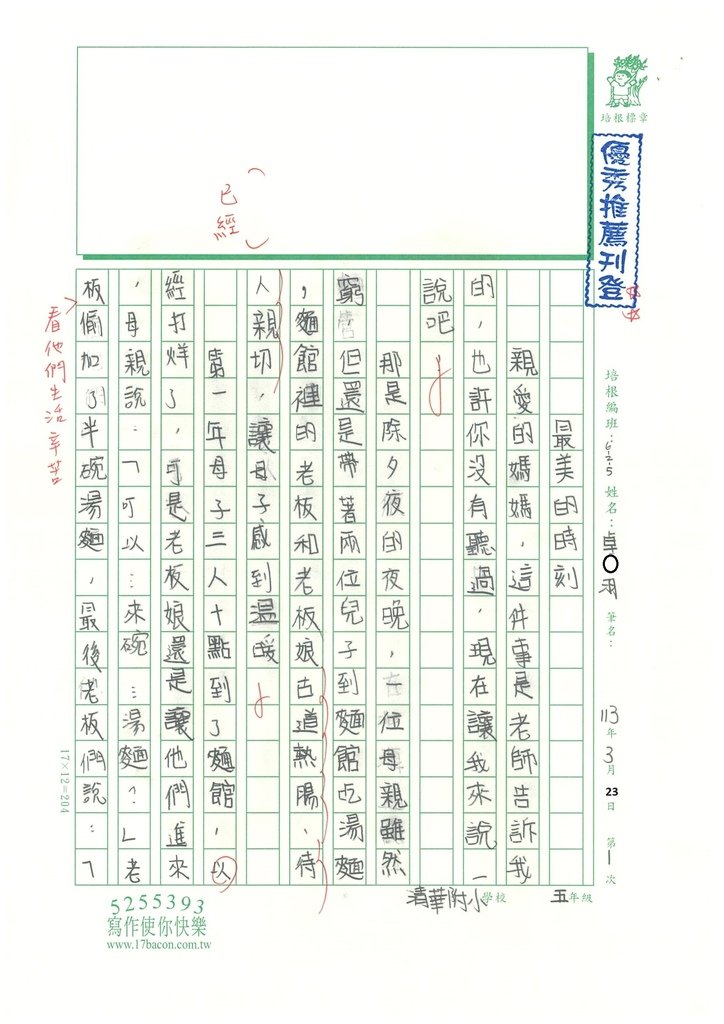 培根標章
優秀推薦刊登
培根編班：6-2-5 姓名：卓〇羽 筆名： 113年3月23日 第1次
清華附小 學校 五年級
最美的時刻
親愛的媽媽，這件事是老師告訴我
的，也許你沒有聽過，現在讓我來說一
說吧
那是除夕夜的夜晚，一位母親雖然
窮，但還是帶著兩位兒子到麵館吃湯麵
，麵館裡的老板和老板娘古道熱腸、待
人親切，讓母子感到溫暖。
第一年母子三人十點到了麵館，以
已經
經打烊了，可是老板娘還是讓他們進來
，母親說：「可以…來碗…湯麵？」老
板偷加了半碗湯麵，最後老板們說：「
看他們生活辛苦
17×12=204
5255393
寫作使你快樂
www.17bacon.com.tw